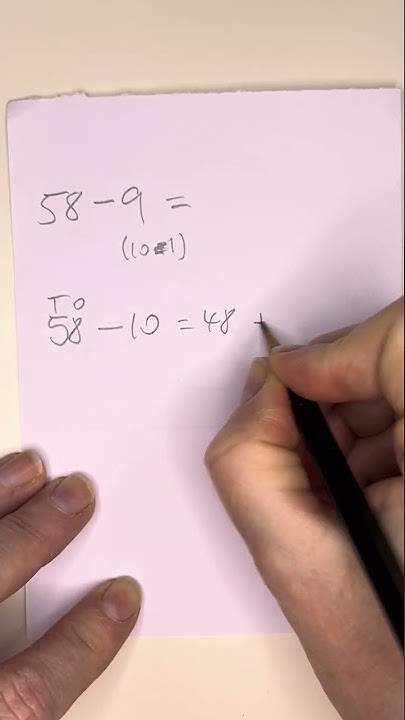 58 - 9 =
(10-1)
TO
58 - 10 = 48 +